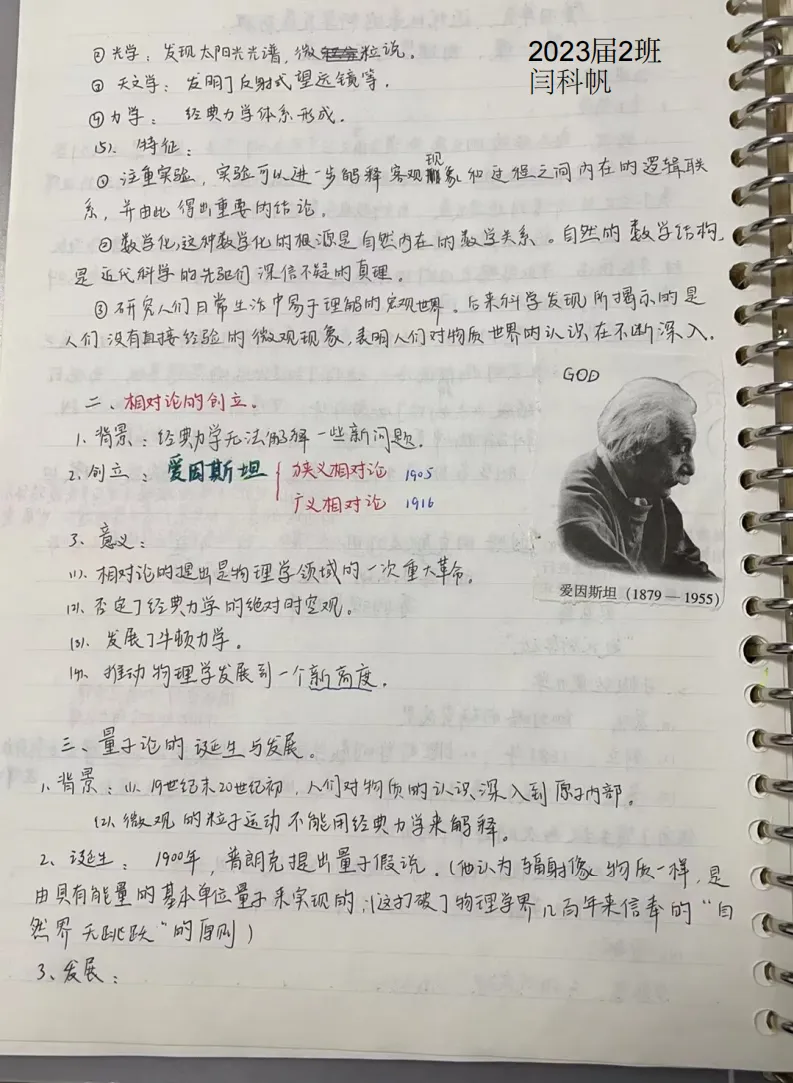 ②光学：发现太阳光光谱，微粒说。
2023届2班
闫科帆
③天文学：发明了反射式望远镜等。
④力学：经典力学体系形成。
(5)、特征：
①注重实验，实验可以进一步解释客观现象和过程之间内在的逻辑联
系，并由此得出重要的结论。
②数学化，这种数学化的根源是自然内在的数学关系。自然的数学结构，
是近代科学的先驱们深信不疑的真理。
③研究人们日常生活中易于理解的宏观世界。后来科学发现所揭示的是
人们没有直接经验的微观现象，表明人们对物质世界的认识在不断深入。
GOD
二、相对论的创立。
1、背景：经典力学无法解释一些新问题。
2、创立：爱因斯坦{狭义相对论 1905
广义相对论 1916
3、意义：
(1)、相对论的提出是物理学领域的一次重大革命。
爱因斯坦（1879—1955）
(2)、否定了经典力学的绝对时空观。
(3)、发展了牛顿力学。
(4)、推动物理学发展到一个新高度。
三、量子论的诞生与发展。
1、背景：(1)、19世纪末20世纪初，人们对物质的认识深入到原子内部。
(2)、微观的粒子运动不能用经典力学来解释。
2、诞生：1900年，普朗克提出量子假说。（他认为辐射像物质一样，是
由具有能量的基本单位量子来实现的；这打破了物理学界几百年来信奉的“自
然界无跳跃”的原则）
3、发展：